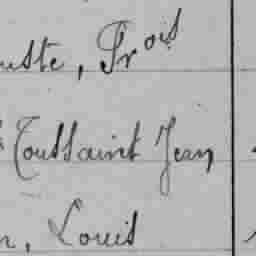 uste, Frois
Toussaint Jean
n, Louis